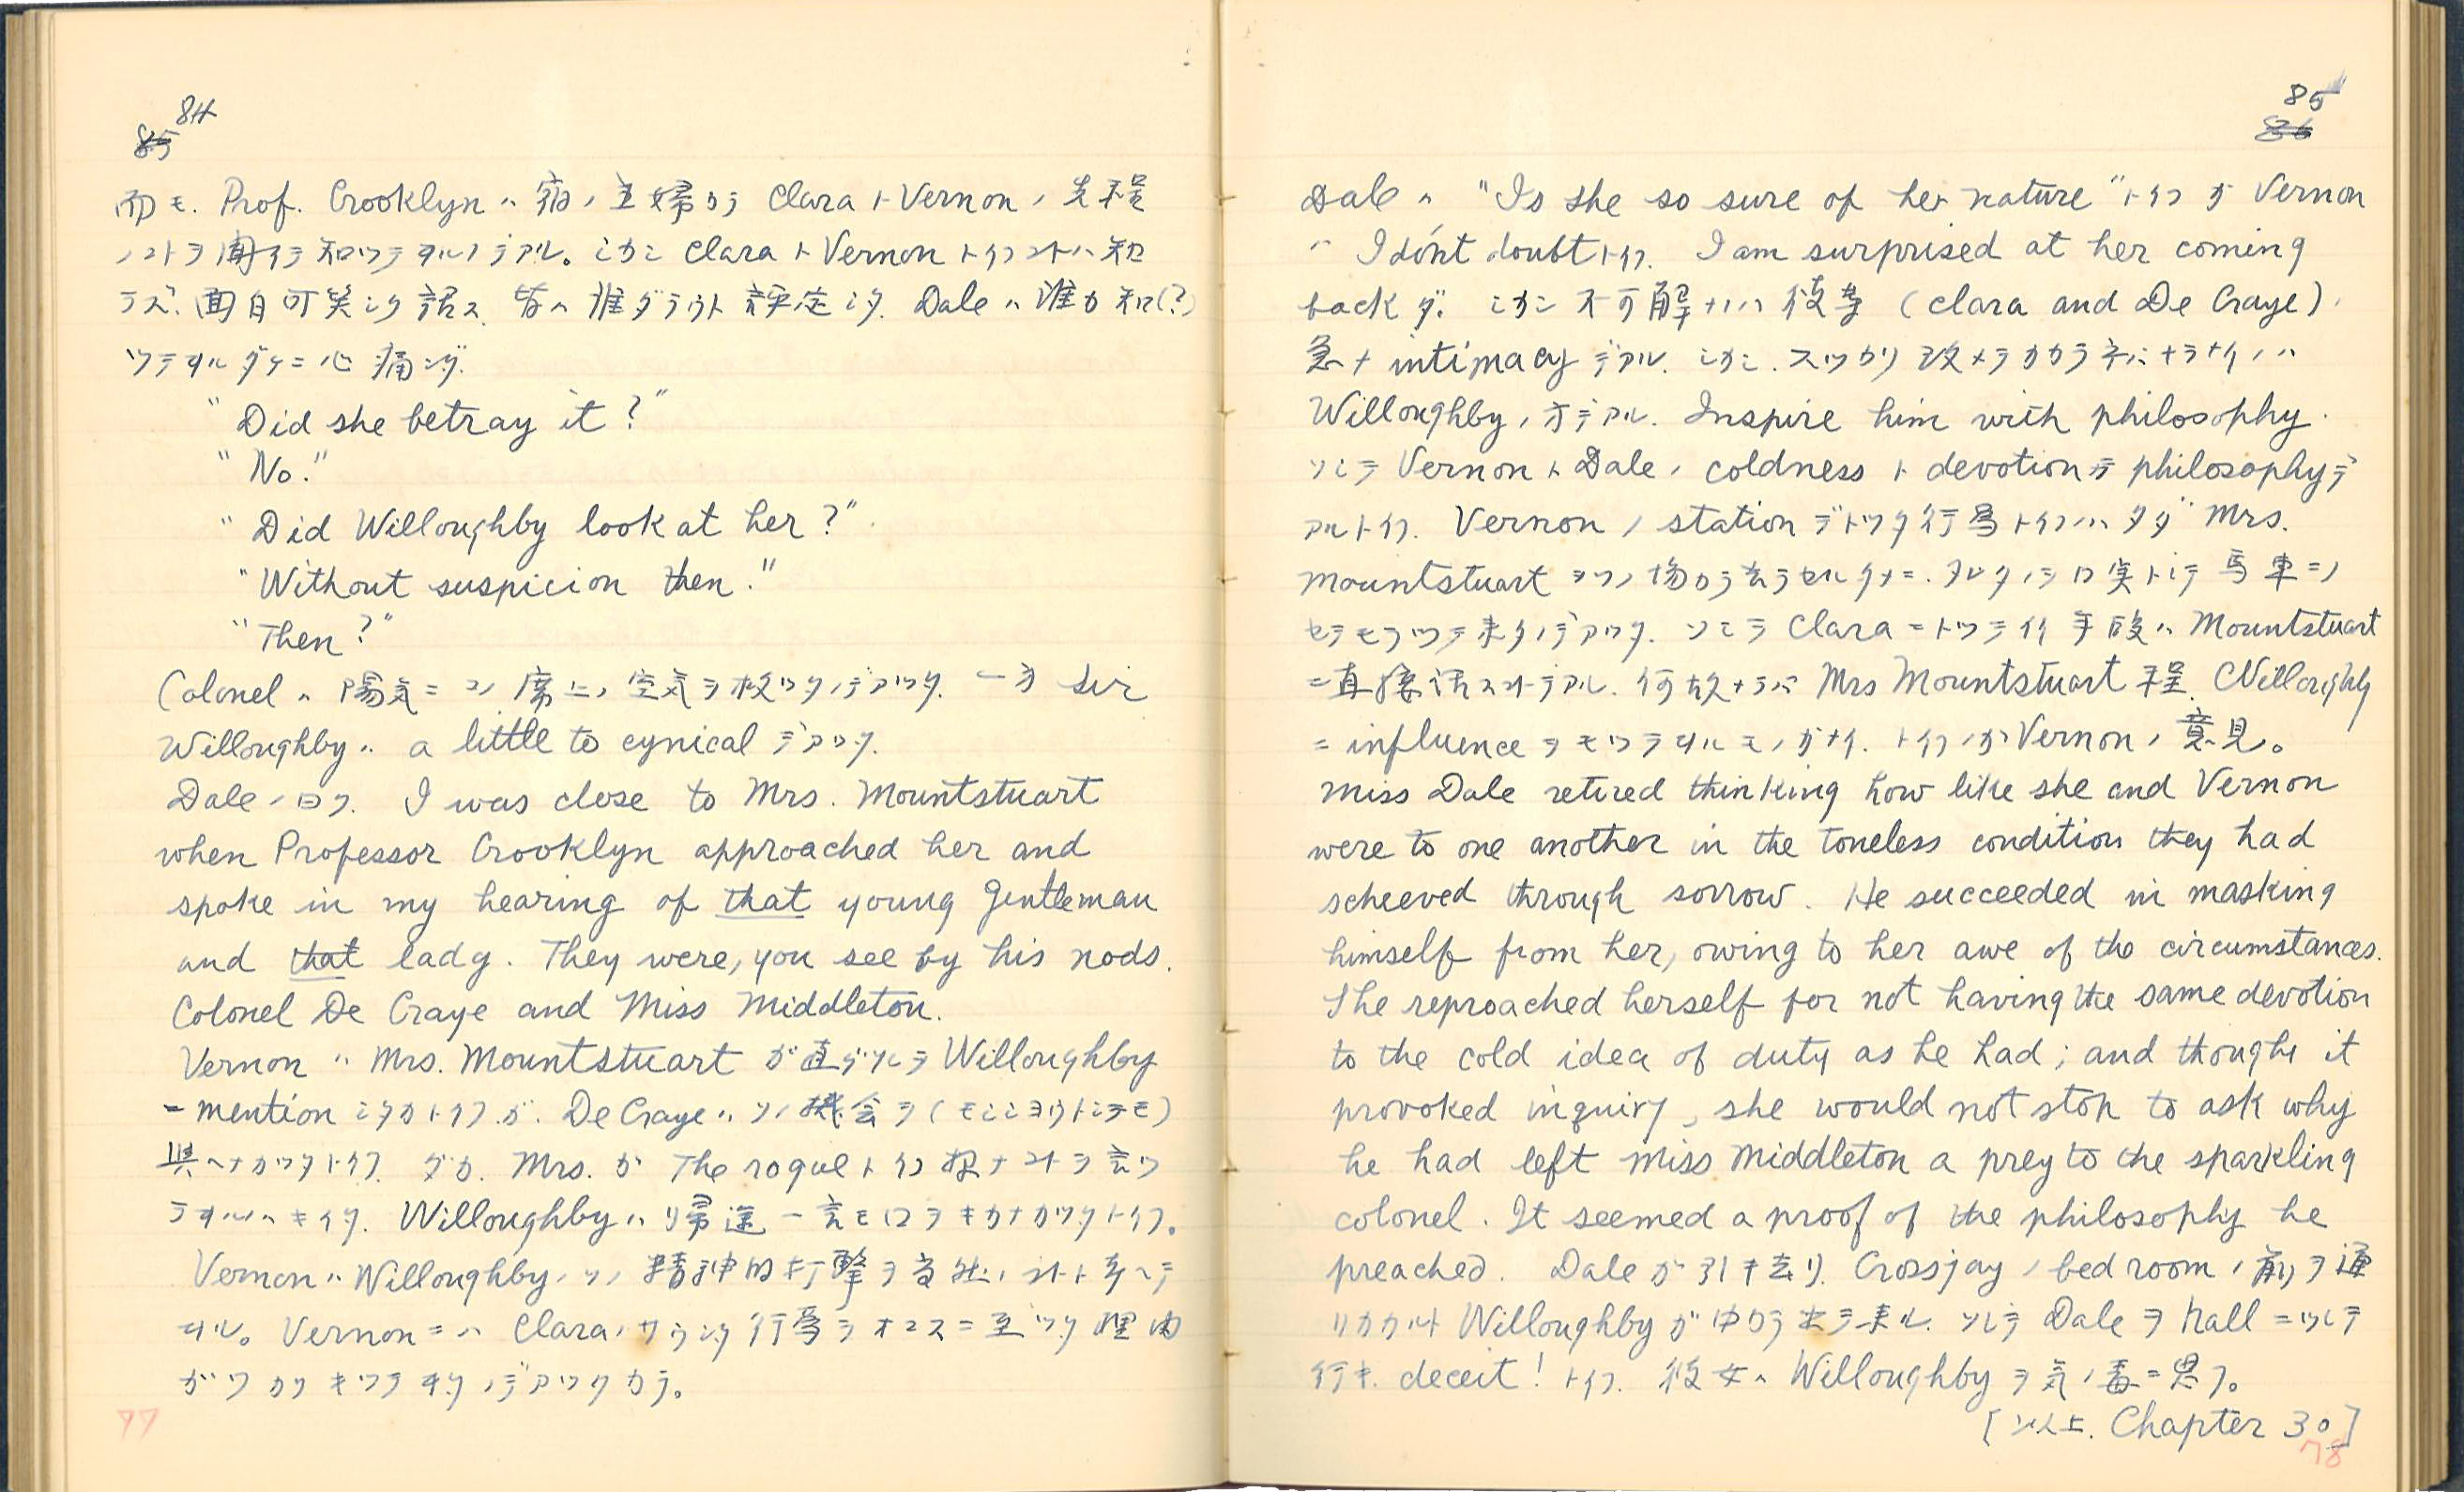 84
85
而モ. Prof. Crooklyn ハ宿ノ主婦カラ Clara ト Vernon ノ先程
ノコトヲ聞イテ知ツテヰルノデアル。シカシ Clara ト Vernon トイフコトハ知
ラズ、面白可笑シク話ス. 皆ハ誰ダラウト評定シタ. Dale ハ誰カ知(?)
ツテヰルダケニ心痛シタ.
"Did she betray it?"
"No."
"Did Willoughby look at her?"
"Without suspicion then."
"Then?"
Colonel ハ陽気ニコノ席上ノ空気ヲ救ツタノデアツタ. 一方 Sir
Willoughby ハ a little to cynical デアツタ.
Dale ノ曰ク. I was close to Mrs. Mountstuart
when Professor Crooklyn approached her and
spoke in my hearing of that young gentleman
and that lady. They were, you see by his nods.
Colonel De Craye and Miss Middleton.
Vernon ハ Mrs. Mountstuart ガ直グソレヲ Willoughby
ニ mention シタカトイフガ. De Craye ハソノ機会ヲ (モシシヨウトシテモ)
與ヘナカツタトイフ. ダガ. Mrs. ガ The rogue トイフ様ナコトヲ言ツ
テヰルハキイタ. Willoughby ハ帰途一言モ口ヲキカナカツタトイフ。
Vernon ハ Willoughby ノソノ精神的打撃ヲ当然ノコトト考ヘテ
ヰル。Vernon ニハ Clara ノサウシタ行為ヲオコスニ至ツタ理由
ガワカリキツテヰタノデアツタカラ。
77
85
86
Dale ハ "Is she so sure of her nature" トイフガ Vernon
ハ I don't doubt トイフ. I am surprised at her coming
back ダ. シカシ不可解ナノハ彼等 (Clara and De Craye) ノ
急ナ intimacy デアル. シカシ. スツカリ改メテカカラネバナラナイノハ
Willoughby ノ方デアル. Inspire him with philosophy.
ソシテ Vernon ト Dale ノ coldness ト devotion ハ philosophy デ
アルトイフ. Vernon ノ station デトツタ行為トイフノハタダ Mrs.
Mountstuart ヲソノ場カラ去ラセルタメニ. ヌレタノヲ口実トシテ馬車ニノ
セテモラツテ来タノデアツタ. ソシテ Clara ニトツテイイ手段ハ Mountstuart
ニ直接話スコトデアル. 何故ナラバ Mrs Mountstuart 程. Willoughby
ニ influence ヲモツテヰルモノガナイ. トイフノガ Vernon ノ意見。
Miss Dale retired thinking how like she and Vernon
were to one another in the toneless condition they had
scheeved through sorrow. He succeeded in masking
himself from her, owing to her awe of the circumstances.
She reproached herself for not having the same devotion
to the cold idea of duty as he had; and thoughe it
provoked inquiry, she would not stop to ask why
he had left Miss Middleton a prey to the sparkling
colonel. It seemed a proof of the philosophy he
preached. Dale ガ引キ去リ. Crossjay ノ bed room ノ前ヲ通
リカカルト Willoughby ガ中カラ出テ来ル. ソシテ Dale ヲ hall ニツレテ
行キ. deceit! トイフ. 彼女ハ Willoughby ヲ気ノ毒ニ思フ。
[以上. Chapter 30]
78